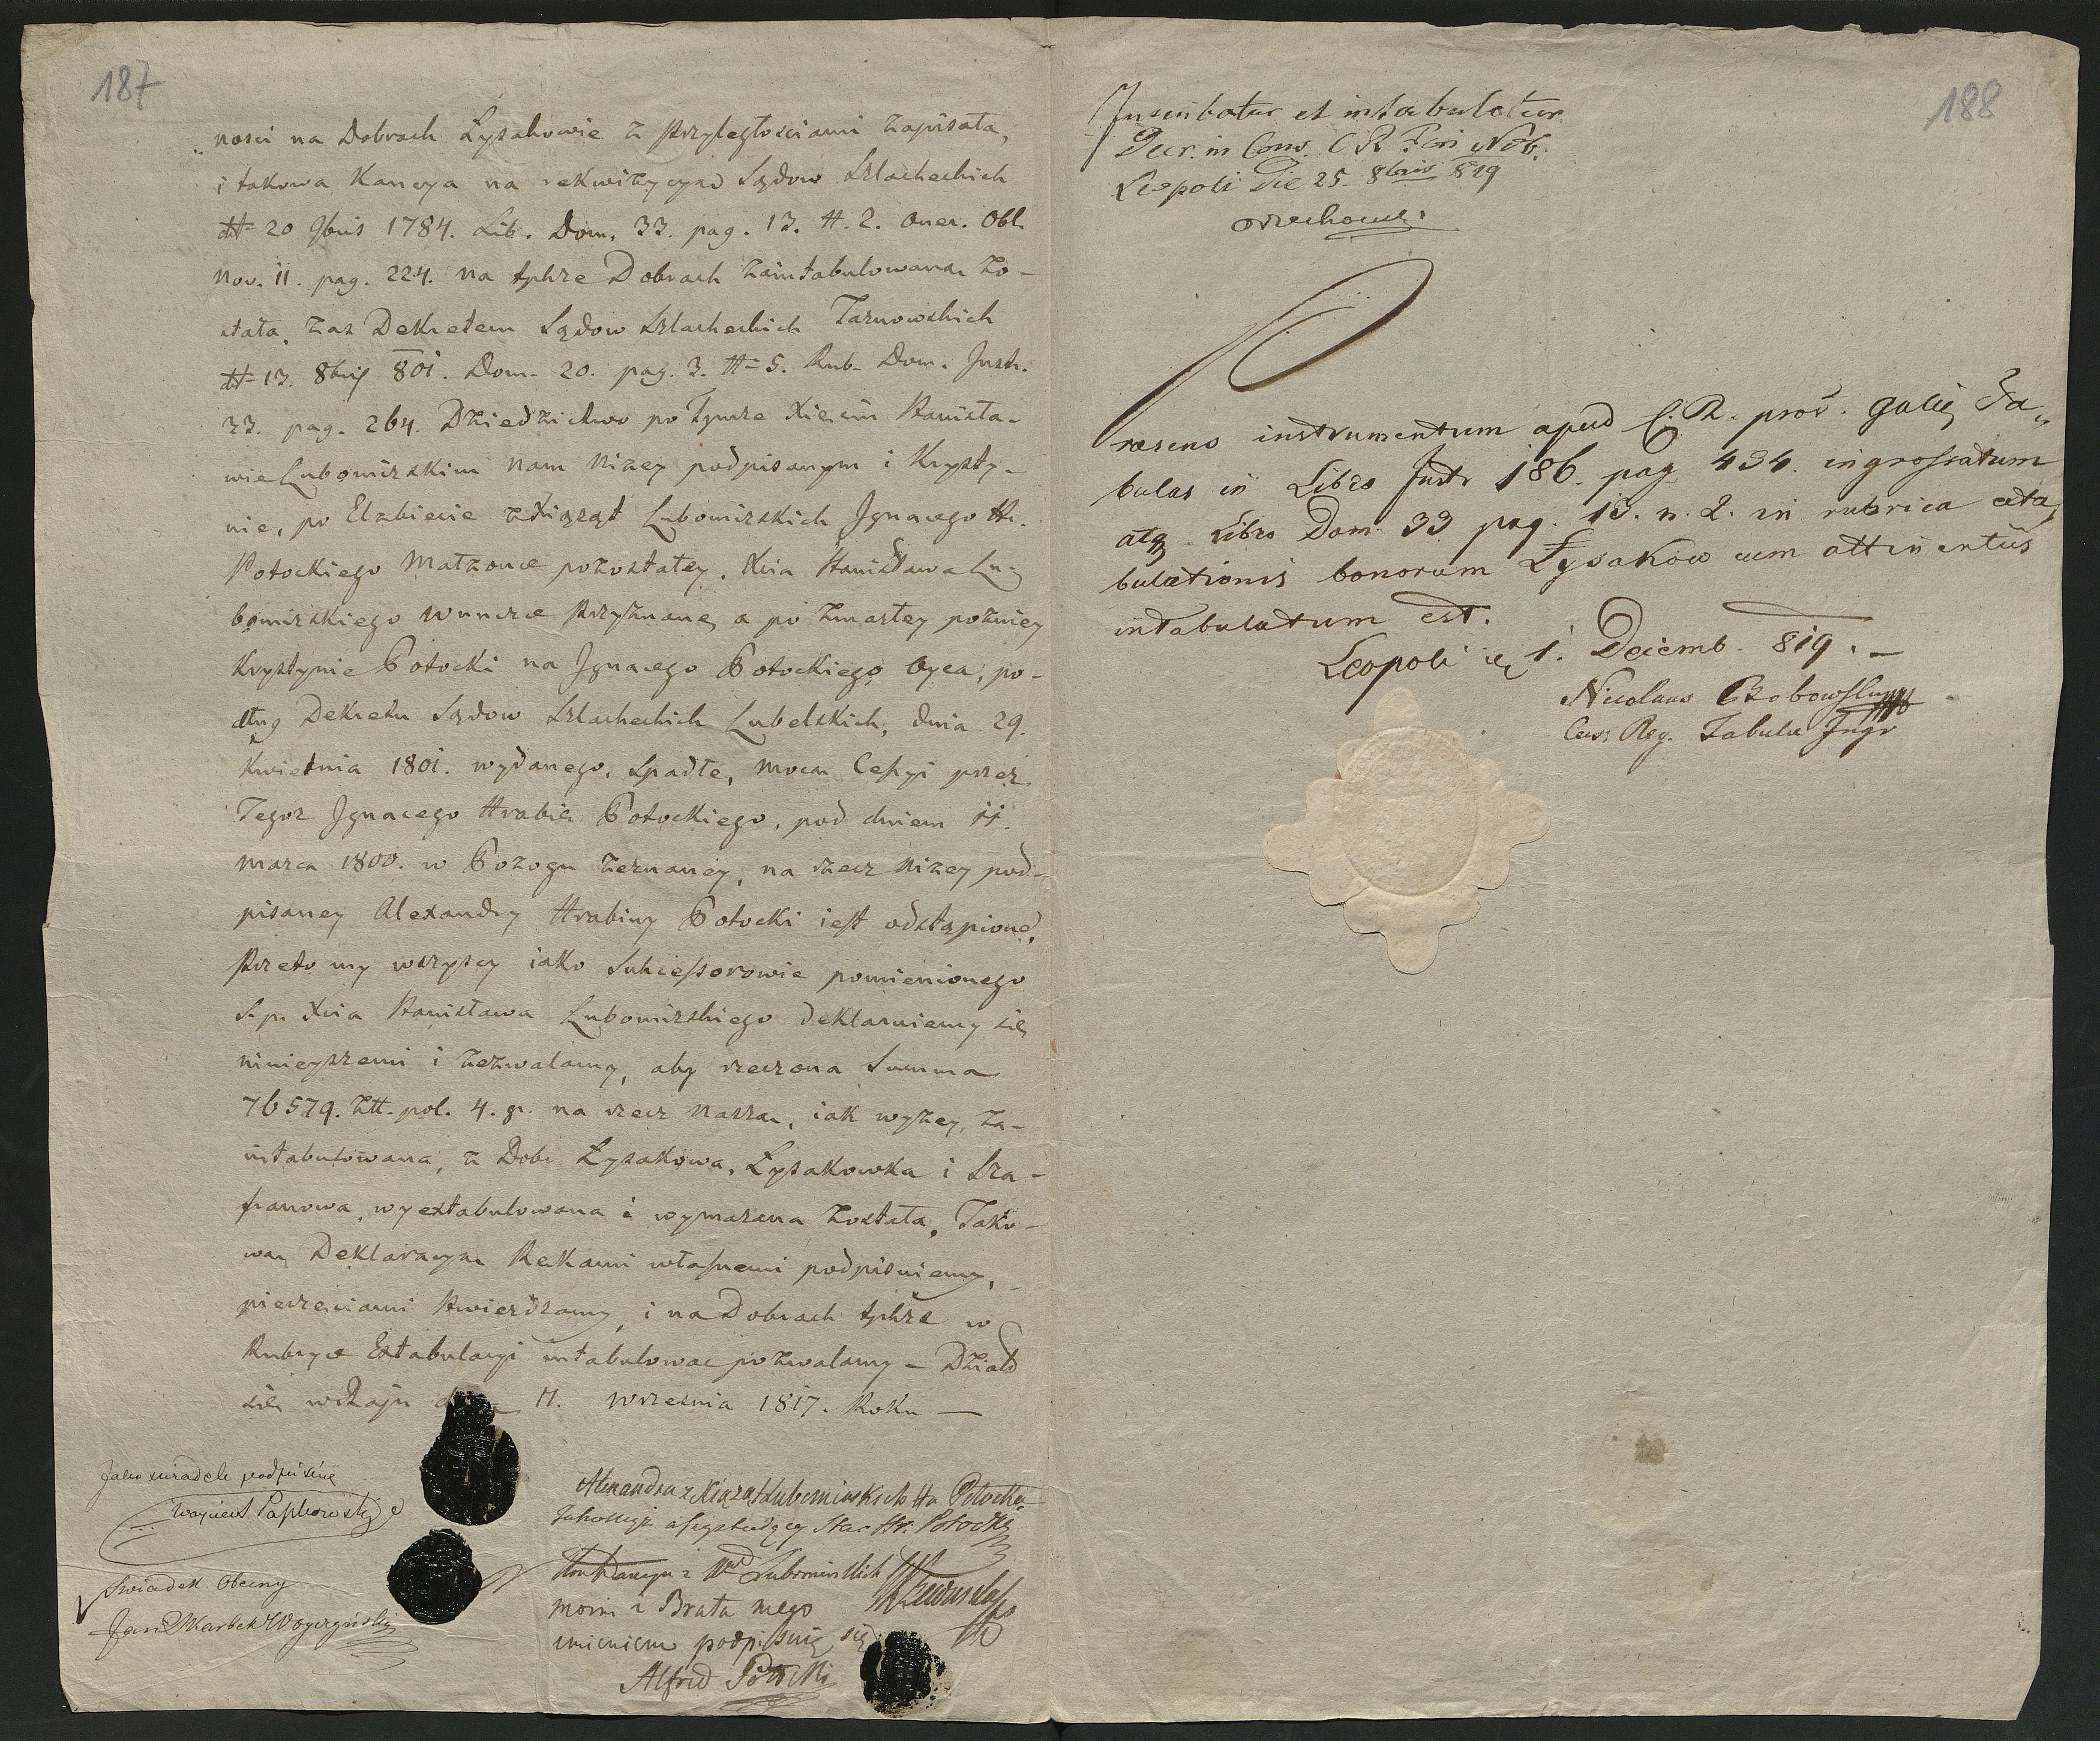 187
nosci na Dobrach Łysakowie z Przyległościami zapisała,
i takowa Kaucya na rekwizycyą Sądow Szlacheckich
dtt= 20 9bris 1784. Lib. Dom. 33. pag. 13. n. 2. oner. Obl.
nov. 11. pag. 224. na tychże Dobrach zaintabulowana zo-
stała, zas Dekretem Sądow Szlacheckich Tarnowskich
dtt= 13. 8bris 801. Dom. 20. pag. 3. n= 5. Rub. Dom. Instr.
23. pag. 264. Dziedzictwo po Tymże Xięciu Stanisła-
wie Lubomirskim nam niżey podpisanym i Krysty-
nie, po Elzbiecie z Xiążąt Lubomirskich Ignacego Hr.
Potockiego Małżonce pozostałey, Xcia Stanisława Lu-
bomirskiego wnuczce przyznane, a po zmarłey pozniey
Krystynie Potocki na Ignacego Potockiego Oyca, po-
dług Dekretu Sądow Szlacheckich Lubelskich, dnia 29.
Kwietnia 1801. wydanego, spadłe, mocą Cessyi przez
Tegoz Ignacego Hrabię Potockiego, pod dniem 11.
marca 1800. w Pozogu zeznaney, na rzecz niżey pod-
pisaney Alexandry Hrabiny Potocki iest odstąpione,
Przeto my wszyscy iako Sukcessorowie pomienionego
S. p. Xcia Stanisława Lubomirskiego deklaruiemy się
ninieyszemi i zezwalamy, aby rzeczona Summa
76579. Złt. pol. 4. gr. na rzecz naszą, iak wyżey, za-
intabulowana, z Dobr Łysakowa, Łysakowka i Sza-
franowa, wyextabulowana i wymazana została, Tako-
wą Deklaracyą Rękami własnemi podpisuiemy,
pieczęciami stwierdzamy, i na Dobrach tychże w
Rubryce Extabulacyi intabulowac pozwalamy – Działo
się 11. wrzesnia 1817. Roku —
Jako swiadek podpisuię
Woyciech
Swiadek Obecny
Jan Skarbek
Alexandra z Xiążąt Lubomirskich Hr Potocka
assystuiący Star Hr. Potocki
Konstancya z Lubomirskich Rzewuska
moim i Brata mego
imieniem podpisuię się
Alfred Potocki
188
Inscribatur et intabuletur
Decr. in Cons. C R Fori Nob.
Leopoli Die 25. 8bris 819
Praesens instrumentum apud C. R. prov. Galic. Ta-
bulas in Libro Instr 186. pag 434. ingrossatum
atq Libro Dom 33 pag. 13. n. 2. in rubrica exta-
bulationis bonorum Łysakow cum attinentiis
intabulatum est.
Leopoli 1. Decemb. 819. –
Nicolaus
Caes Reg. Tabulae Ingr